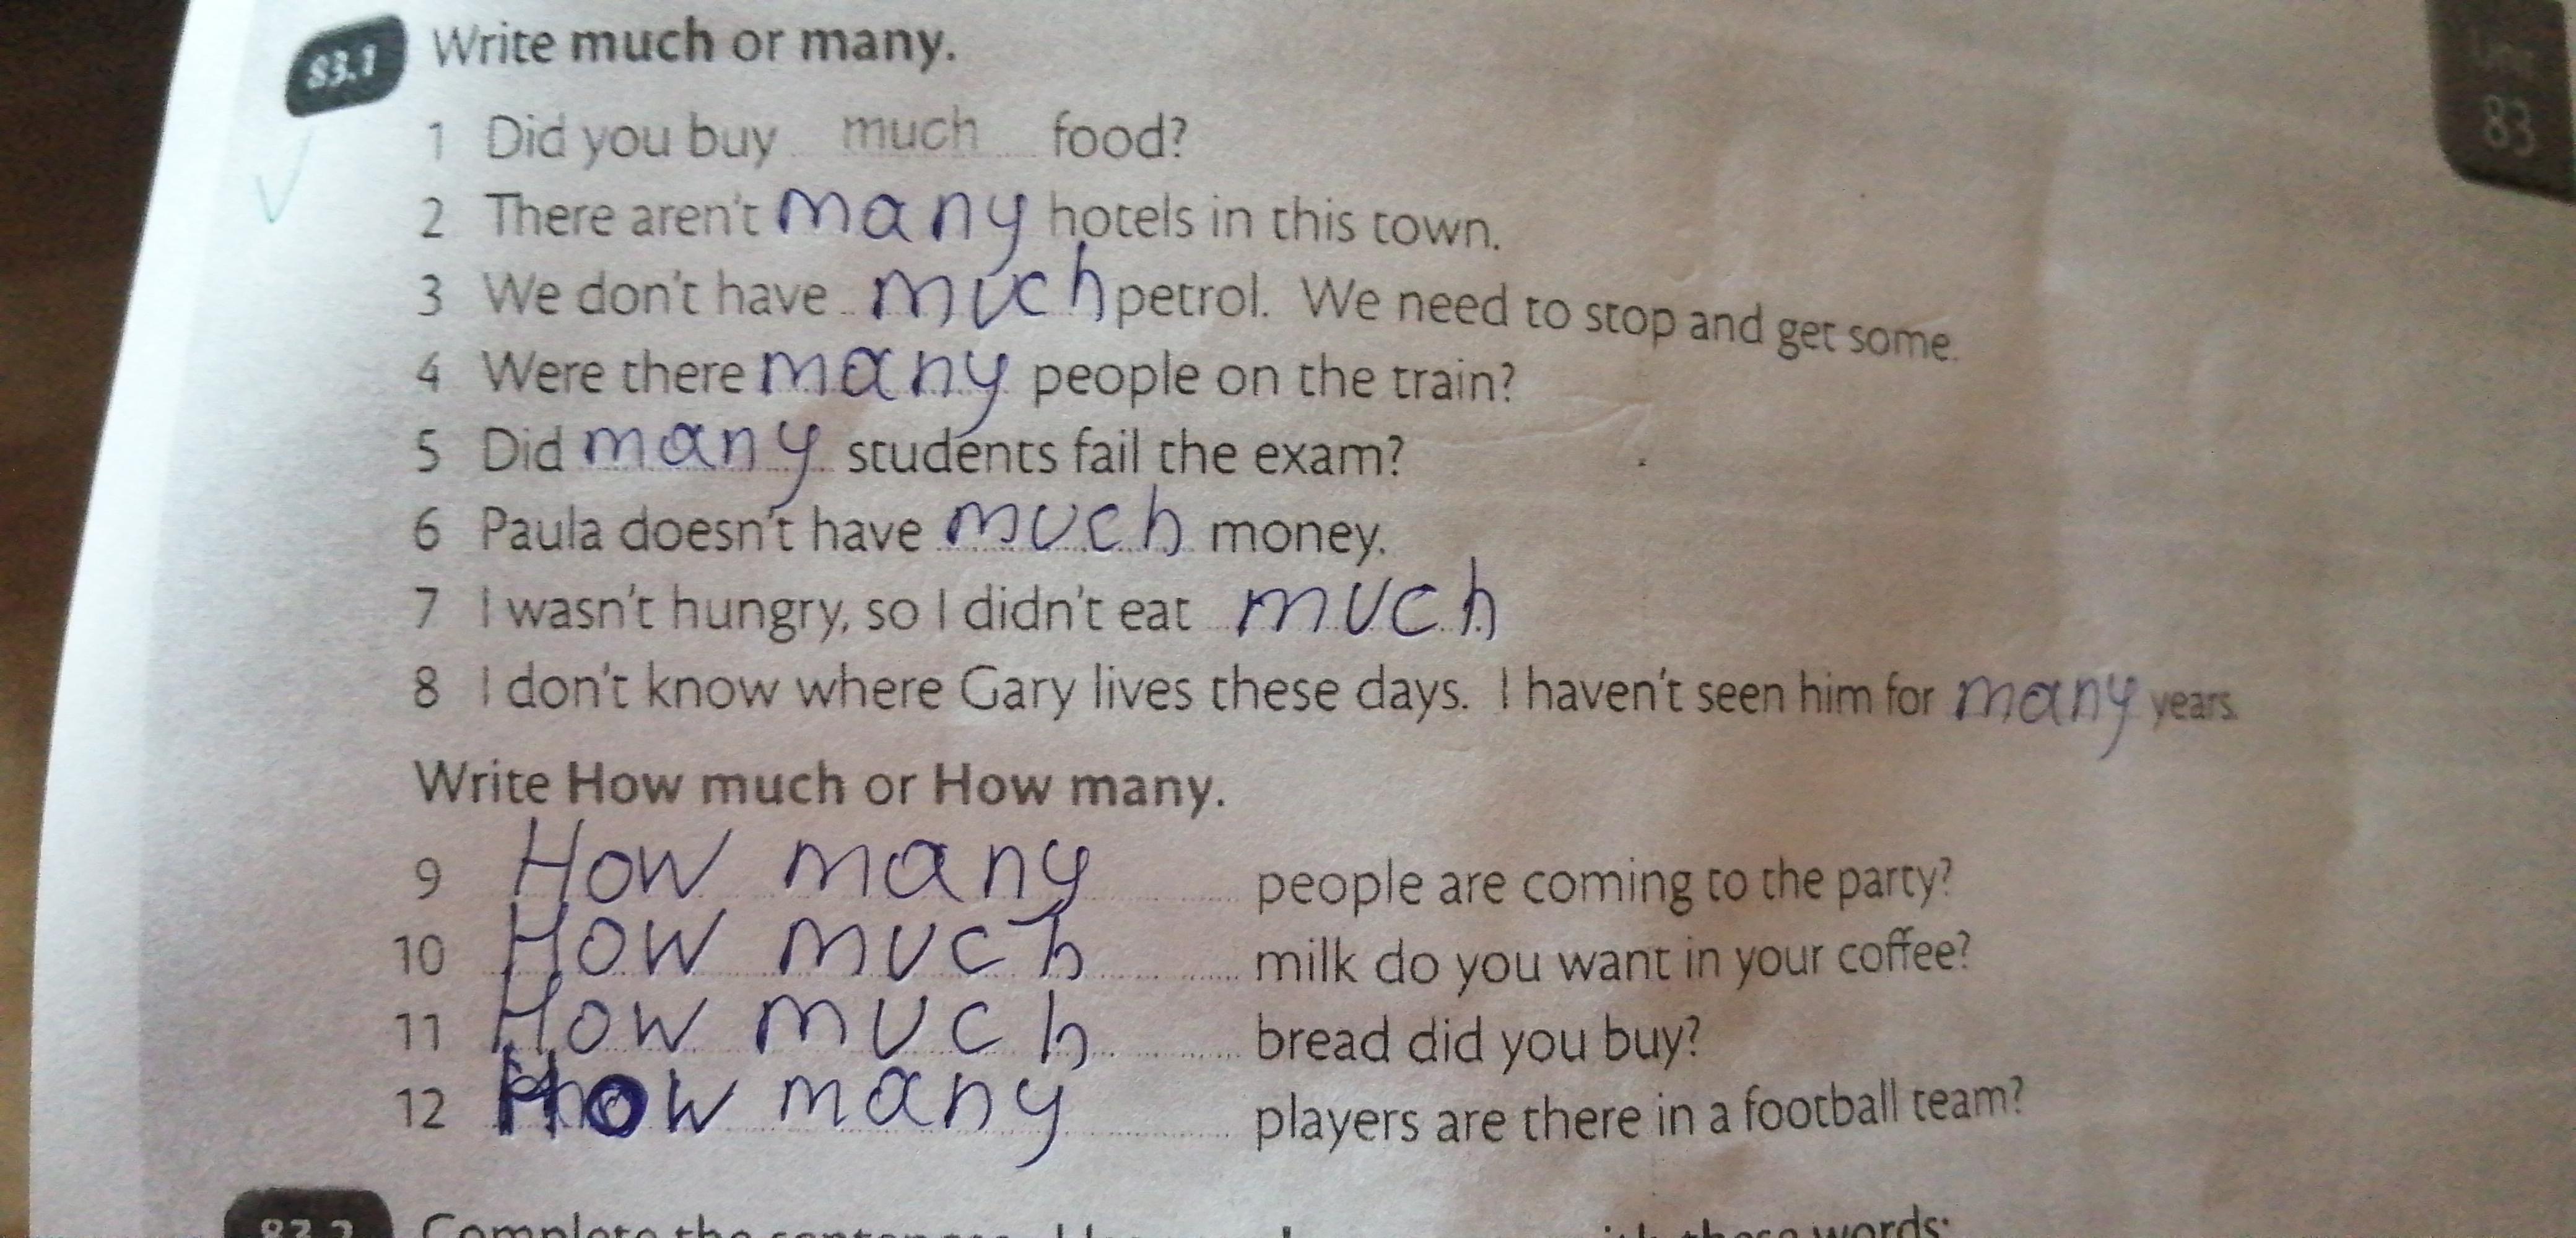 83.1 Write much or many.
Unit
83
1 Did you buy much food?
2 There aren't many hotels in this town.
3 We don't have much petrol. We need to stop and get some.
4 Were there many people on the train?
5 Did many students fail the exam?
6 Paula doesn't have much money.
7 I wasn't hungry, so I didn't eat much
8 I don't know where Gary lives these days. I haven't seen him for many years.
Write How much or How many.
9 How many people are coming to the party?
10 How much milk do you want in your coffee?
11 How much bread did you buy?
12 How many players are there in a football team?
83.2 Complete the sentences. with these words: